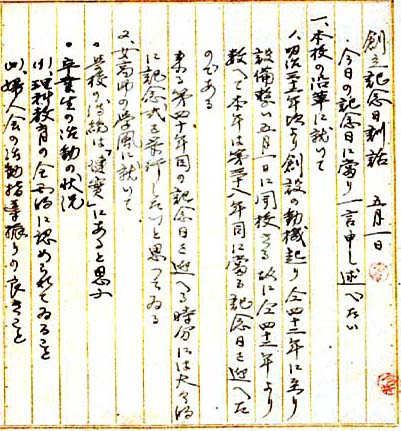 創立記念日訓話 五月一日
・今日の記念日に當り一言申し述べたい
一、本校の沿革に就いて
明治 年 より創設の動機起り 四十一年に至り
設備整い五月一日に開校さる 故に 四十一年より
数へて本年は第 年目に當る記念日を迎へた
のである
来る第四十年目の記念日を迎へる時分には大々的
に記念式を挙行したいと思つてゐる
女高師の学風に就いて
・学校の傳統は「健實」にあると思ふ
・卒業生の活動の状況
(1)理科教育の全 的に認められてゐること
婦人会の活動指導振りの良きこと